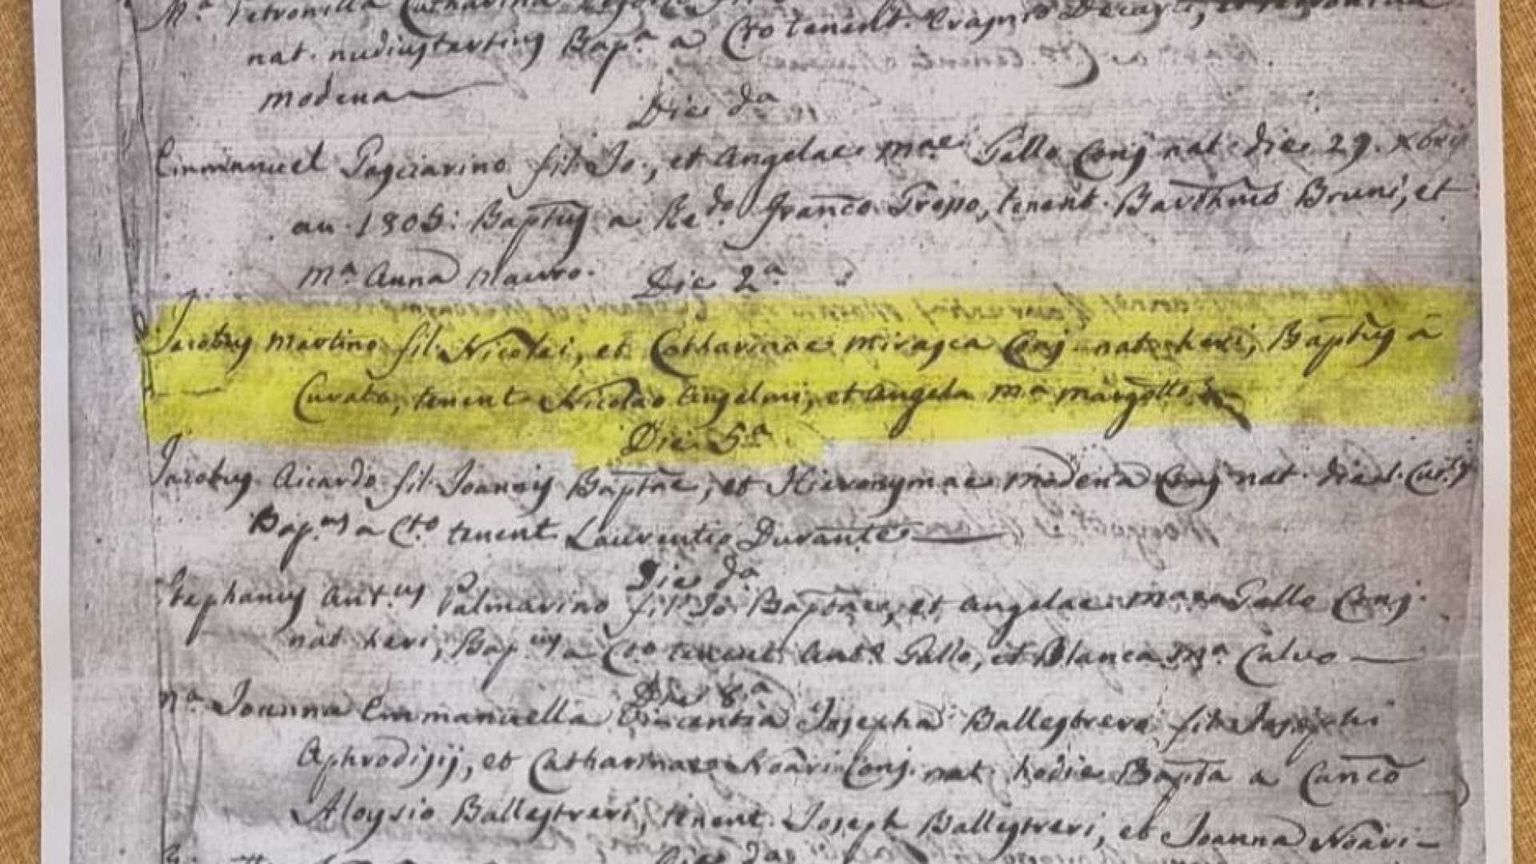 Mª Petronilla Catharina
nat. nudiustertius Bapª a Cto tenent. Erasmo et
modena
Die dª
Emmanuel Pagliarino fil. Jo., et Angelae mae Gallo Conj nat. die 29. Xbris
an. 1805. Baptus a Redo Franco Tropo, tenent. Barthmo Bruni, et
Mª Anna Mauro.
Die 2ª
Jacobus Martino fil. Nicolai, et Catharinae Conj. nat. heri, Baptus a
Curato, tenent Nicolao Angelini, et Angela Mª
Die 5ª
Jacobus Aicardo fil. Joannis Baptae, et Hieronymae modena Conj nat. die
Bapus a Cto tenent Laurentio Durante
Die dª
Stephanus Antus Palmarino fils Jo. Baptae, et Angelae Gallo Conj.
nat. heri, Bapus a Cto tenent Anto Gallo, et Blanca Mª Calvo
Die 8ª
Mª Joanna Emmanuella Vincentia Josepha Ballestreri fil. Josephi
Aphrodisij, et Catharinae Noari Conj. nat. hodie Bapta a Canco
Aloysio Ballestreri, tenent. Joseph Ballestreri, et Joanna Noari
Die dª